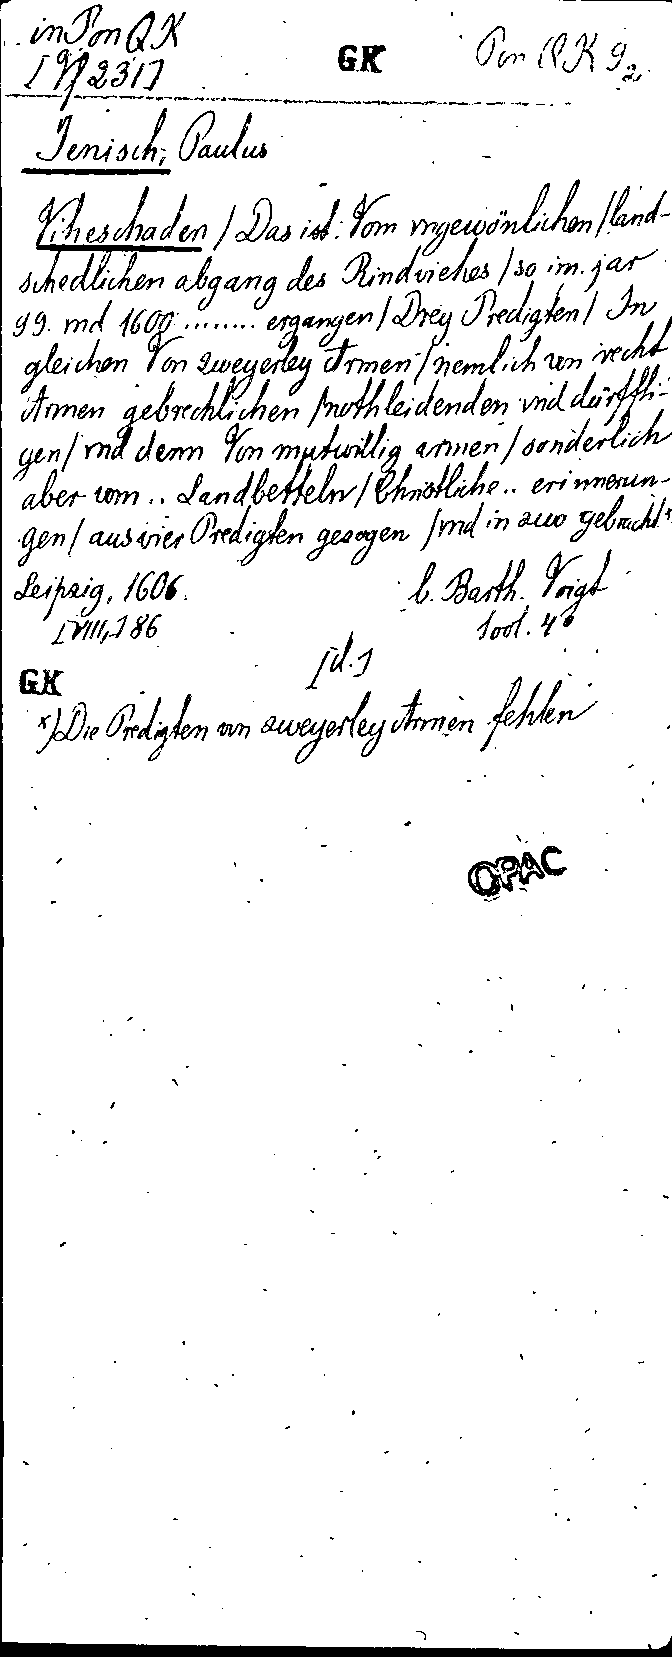 in Pon QK
GK
Pon QK 9 2.
Jenisch, Paulus
Viheschaden / Das ist: Vom vngewönlichen / land-
schedlichen abgang des Rindviehes / so im. jar
99. vnd 1600 ........ ergangen / Drey Predigten / In
gleichen Von zweyerley Armen / nemlich von recht
Armen gebrechlichen / nothleidenden vnd dürffti-
gen / vnd denn Von mutwillig armen / sonderlich
aber vom .. Landbetteln / Christliche .. erinnerun-
gen / aus vier Predigten gezogen / vnd in zwo gebracht *
Leipzig, 1606.
b. Barth. Voigt
[VIII,] 86
4°
[d.]
GK
*) Die Predigten von zweyerley Armen fehlen
OPAC